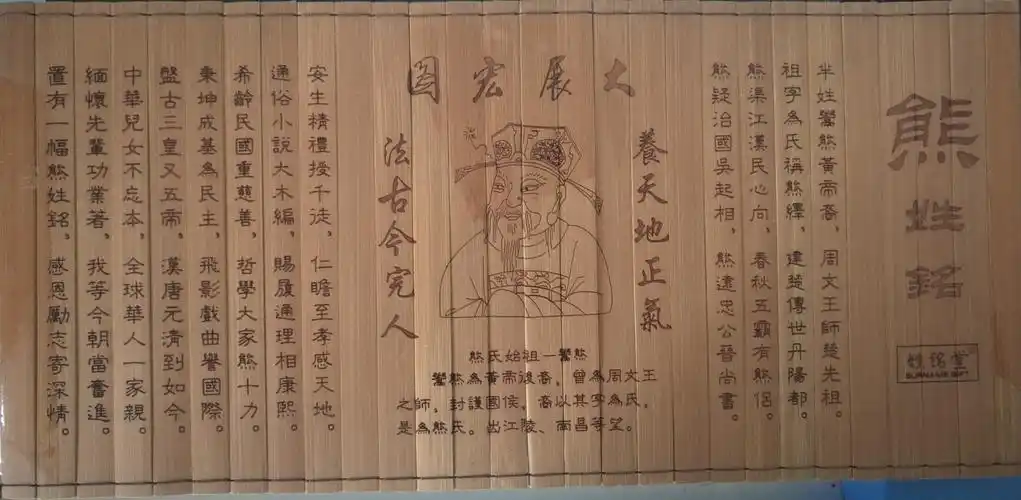 熊姓銘
姓銘堂
SURNAME GIFT
芈姓鬻熊黃帝裔，周文王師楚先祖。
祖字為氏稱熊繹，建楚傳世丹陽都。
熊渠江漢民心向，春秋五霸有熊侶。
熊疑治國吳起相，熊遠忠公晉尚書。
大展宏圖
養天地正氣
法古今完人
熊氏始祖一鬻熊
鬻熊為黃帝後裔，曾為周文王
之師，封護國侯，裔以其字為氏，
是為熊氏。出江陵、南昌等望。
安生精禮授千徒，仁瞻至孝感天地。
通俗小說大木編，賜履通理相康熙。
希齡民國重慈善，哲學大家熊十力。
秉坤成基為民主，飛影戲曲譽國際。
盤古三皇又五帝，漢唐元清到如今。
中華兒女不忘本，全球華人一家親。
緬懷先輩功業著，我等今朝當奮進。
置有一幅熊姓銘，感恩勵志寄深情。